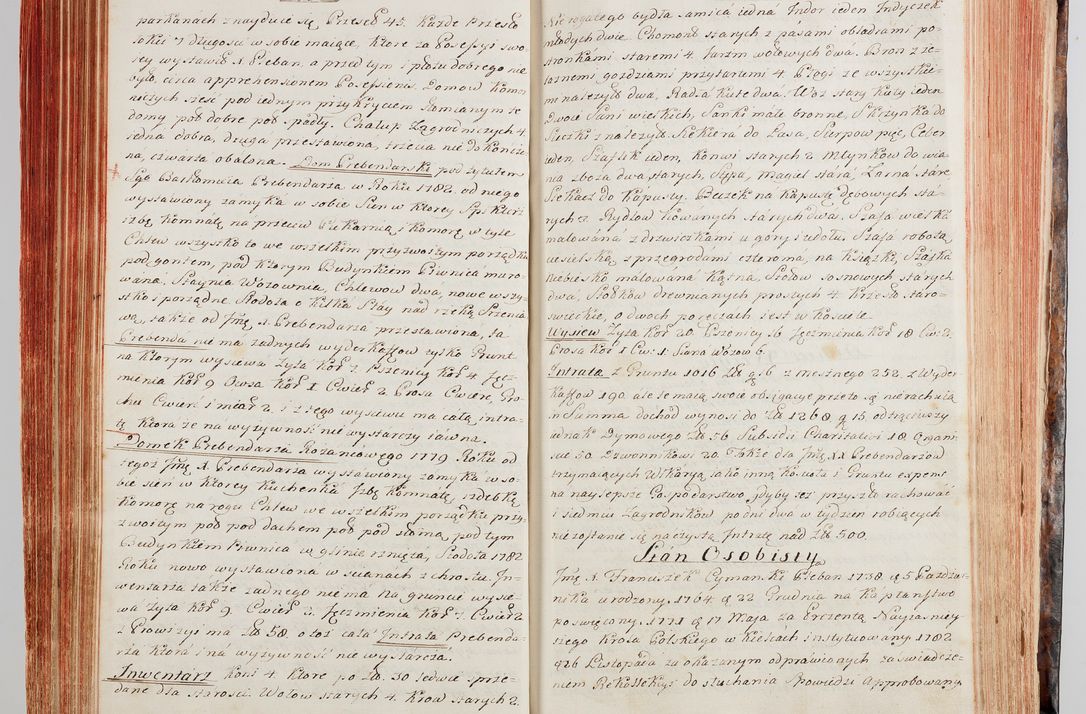 parkanach znayduie się Przeseł 45. każde Przesło
łokci 7 długości w sobie maiące, które za Possessyi swo
iey wystawił X Pleban, a przed tym i płotu dobrego nie
było, circa apprehensionem Possessionis. Domow komor
niczych sześć pod iednym przykryciem słomianym te
domy pół dobre pół spadły. Chałup Zagrodniczych 4
iedna dobra, druga przestawiona, trzecia nie dokończo
na, czwarta obalona. Dom Prebendarski pod tytułem
Sgo Bartłomieia Prebendarza w Roku 1782. od niego
wystawiony zamyka w sobie Sień w ktorey
Izbę komnatę na przeciw Piekarnią i komorę w tyle
Chlew wszystko to we wszelkim przyzwoitym porządku
pod gontem, pod ktorym Budynkiem Piwnica muro
wana. Staynia Wozownia, Chlewow dwa, nowe wszy
stko i porządne Stodoła o kilka Stay nad rzeką Przenie
wą, także od Jmę X Prebendarza przestawiona, Ta
Prebenda nie ma żadnych wyderkaffow tylko Grunt
na ktorym wysiewa Żyta Kor 7. Pszenicy Kor 4 Jęcz
mienia Kor 9 Owsa Kor 1 Cwierć 2. Prosa Cwierć, Gro
chu Cwierć i miar 2. i z tego wysiewu ma całą intra
tę ktora że na wyżywność nie wystarczy iawna.
Domek Prebendarza Rożancowego 1779 Roku od
tegoż Jmę X Prebendarza wystawiony zamyka w so
bie sień w ktorey kuchenka Izbę komnatę, izdebkę
komorę na rogu Chlew we wszelkim porządku przy
zwoitym pół pod dachem pół pod słomą, pod tym
Budynkiem Piwnica w glinie rznięta, Stodoła 1782
Roku nowo wystawiona w ścianach z chrostu. In
wentarza także żadnego nie ma Na gruncie wysie
wa Żyta Kor 9. Cwierć 2. Jęczmienia Kor 7. Cwierć 2
z Prowizyi ma Zł 58. otoż cała Intrata Prebenda
rza ktora i na wyżywność nie wystarcza.
Inwentarz koni 4 ktore po Zł. 30 ledwie sprze
dane dla starości. Wołow starych 4. Krow starych 2.
Nie rogatego bydła samica iedna Indor ieden Indyczek
młodych dwie. Chomont starych z pasami obładrami po
stronkami staremi 4 Jarzm wołowych dwa. Bron z że
laznemi gozdziami przystarymi 4. Plugi ze wszystkie
mi należyto dwa, Radła kute dwa. Woz stary kuty ieden
Dwoie Sani wieckich, Sanki małe bronne, Skrzynka do
Sieczki z należyto Siekiera do Lasa, Sierpow pięć, Ceber
ieden, Szaflik ieden, konwi starych 2 Młynkow do wia
nia zboża dwa starych, Magiel stara, Żarna stare
Siekacz do Kapusty. Beczek na kapustę dębowych sta
rych 2. Rydlow kowanych starych dwa. Szafa wielka
malowana z drzwiczkami u gory i u dołu. Szafa robotą
wieiską z przegrodami czteroma, na Książki, Szafka
niebiesko malowana kątna, Stołow sosnowych starych
dwa, Stołkow drewnianych prostych 4. Krzesło staro
swieckie, o dwoch poręczach iest w kościele
Wysiew Żyta Kor 20 Pszenicy 16 Jęczmienia Kor 18 Cw: 2.
Prosa Kor 1 Cw: 1. Siana Wozow 6.
Intrata z Gruntu 1016 Zł g 6 z mesznego 252. z Wyder
kaffow 190. ale że maią swoie obligacye przeto się nierachuią
in Summa dochod wynosi do Zł 1268 g 15 odtrąciwszy
iednak Dymowego Zł 56 Subsidii Charitativi 18 Organi
ście 50. Dzwonnikowi 20. Także dla Jmę XX Prebendarzow
trzymaiących Wikaryą iako inną koszta i Gruntu expens
na naylepsze Gospodarstwo gdyby też przyszło rachować
i siedmiu Zagrodnikow po dni dwa w tydzień robiących
nie zostanie się na czystą Intratę nad Zł 500.
Stan Osobisty
Jmę X. Franciszek Cymanski Pleban 1738 g 5 Pazdzier
nika urodzony. 1764 g 22 Grudnia na Kapłanstwo
poswięcony. 1771 g 17 Maja za Prezentą Nayiasniey
szego Krola Polskiego w Kielcach instytuowany 1782
g 26 Listopada za okazanym odprawionych zaswiadcze
niem Rekollekcyi do słuchania Spowiedzi approbowany